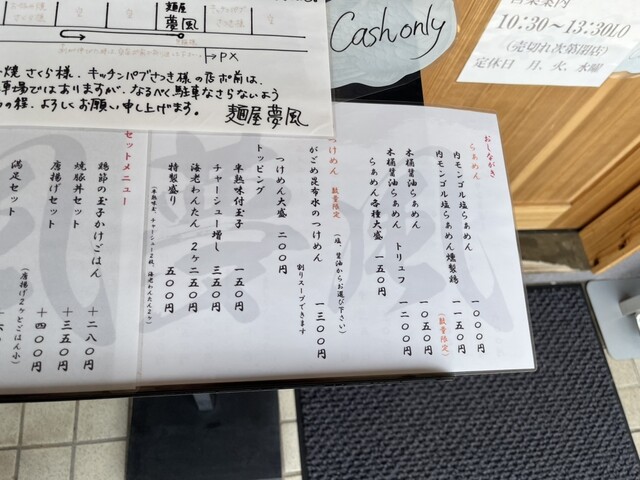 空
空
麺屋
夢風
空
→PX
焼 さくら様、キッチンパブさつき様の店の前は、
車場ではありますが、なるべく駐車なさらないよう
の程、よろしくお願い申し上げます。 麺屋夢風
Cash only
営業案内
10:30~13:30LO
(売切れ次第閉店)
定休日 月、火、水曜
おしながき
らぁめん
内モンゴル塩らぁめん 一〇〇〇円
内モンゴル塩らぁめん燻製鶏 一一五〇円
(数量限定)
木桶醤油らぁめん 一〇五〇円
木桶醤油らぁめん トリュフ 一二〇〇円
らぁめん各種大盛 一五〇円
つけめん 数量限定
(塩、醤油からお選び下さい)
がごめ昆布水のつけめん 一三〇〇円
割りスープできます
つけめん大盛 二〇〇円
トッピング
半熟味付玉子 一五〇円
チャーシュー増し 三五〇円
海老わんたん 2ヶ 二五〇円
特製盛り 五〇〇円
(半熟味玉、チャーシュー2枚、海老わんたん2ヶ)
セットメニュー
鶏節の玉子かけごはん +二八〇円
焼豚丼セット +三五〇円
唐揚げセット +四〇〇円
(唐揚げ2ヶとごはん小)
満足セット